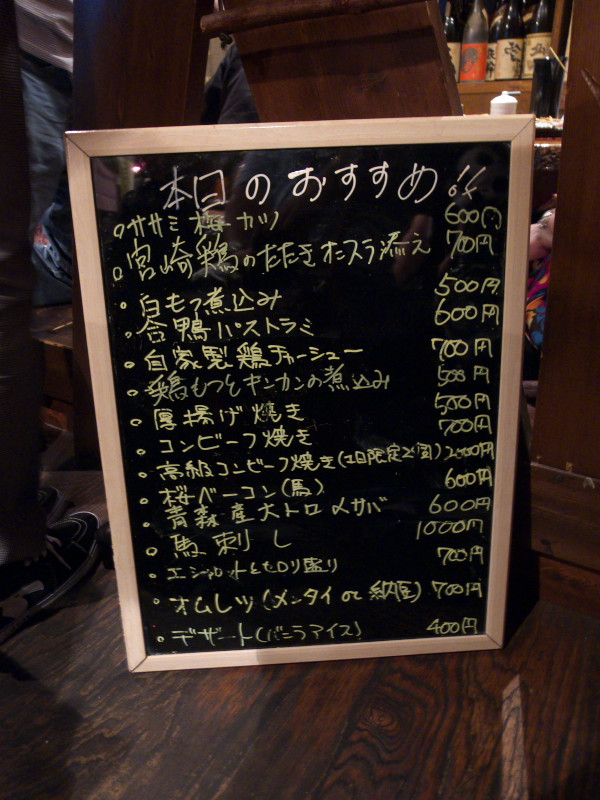 本日のおすすめ!!
ササミ梅カツ 600円
宮崎鶏のたたきオニスラ添え 700円
白もつ煮込み 500円
合鴨パストラミ 600円
自家製鶏チャーシュー 700円
鶏もつとキンカンの煮込み 500円
厚揚げ焼き 500円
コンビーフ焼き 700円
高級コンビーフ焼き(1日限定2個) 2000円
桜ベーコン(馬) 600円
青森産大トロ〆サバ 600円
馬刺し 1000円
エシャレットとセロリ盛り 700円
オムレツ(メンタイ or 納豆) 700円
デザート(バニラアイス) 400円